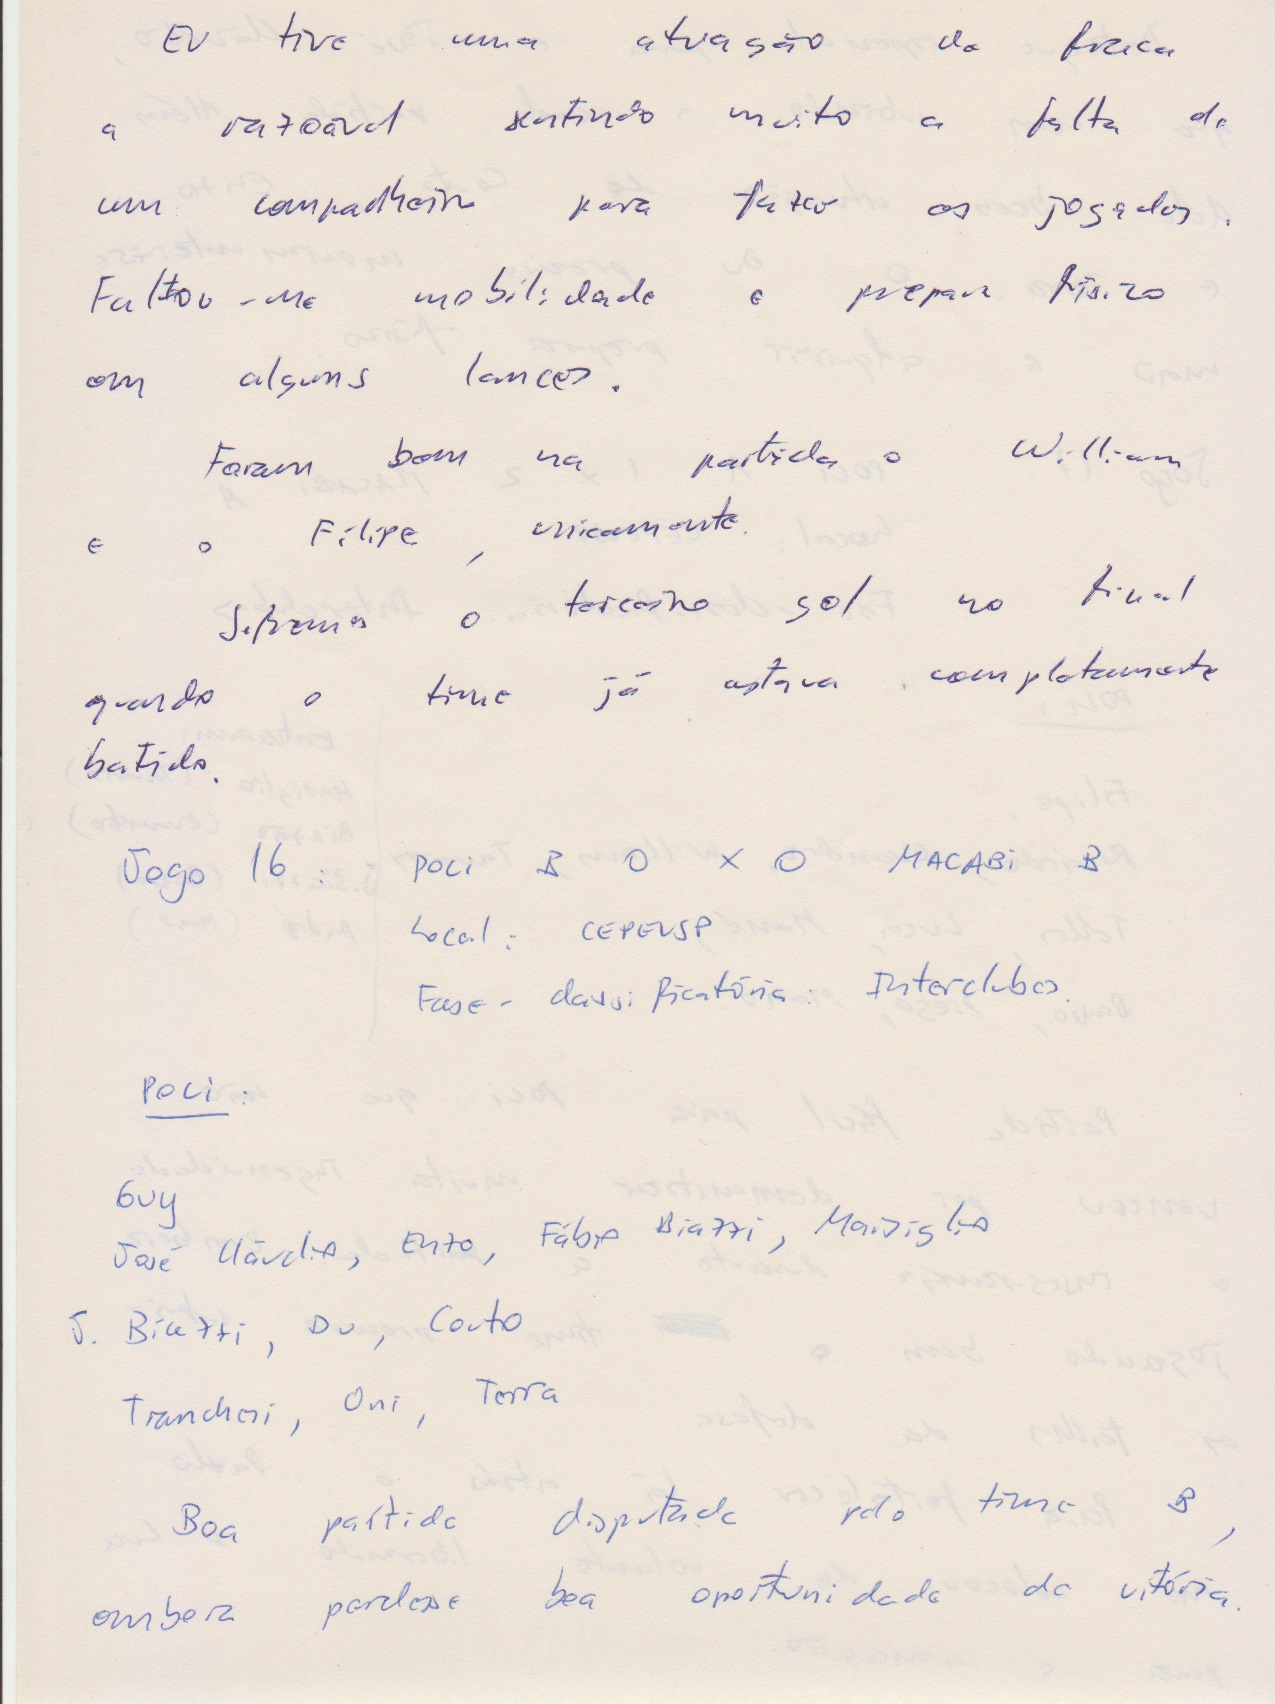 Eu tive uma atuação de fraca
a razoável sentindo muito a falta de
um companheiro para fazer as jogadas.
Faltou-me mobilidade e preparo físico
em alguns lances.
Foram bem na partida o William
e o Filipe, unicamente.
Sofremos o terceiro gol no final
quando o time já estava completamente
batido.
Jogo 16: POLI B 0 X 0 MACABI B
Local: CEPEUSP
Fase-classificatória: Interclubes.
POLI:
Guy
José Cláudio, Enzo, Fábio Biazzi, Marsiglio
J. Biazzi, Du, Couto
Trancheri, Oni, Terra
Boa partida disputada pelo time B,
embora perdesse boa oportunidade de vitória.